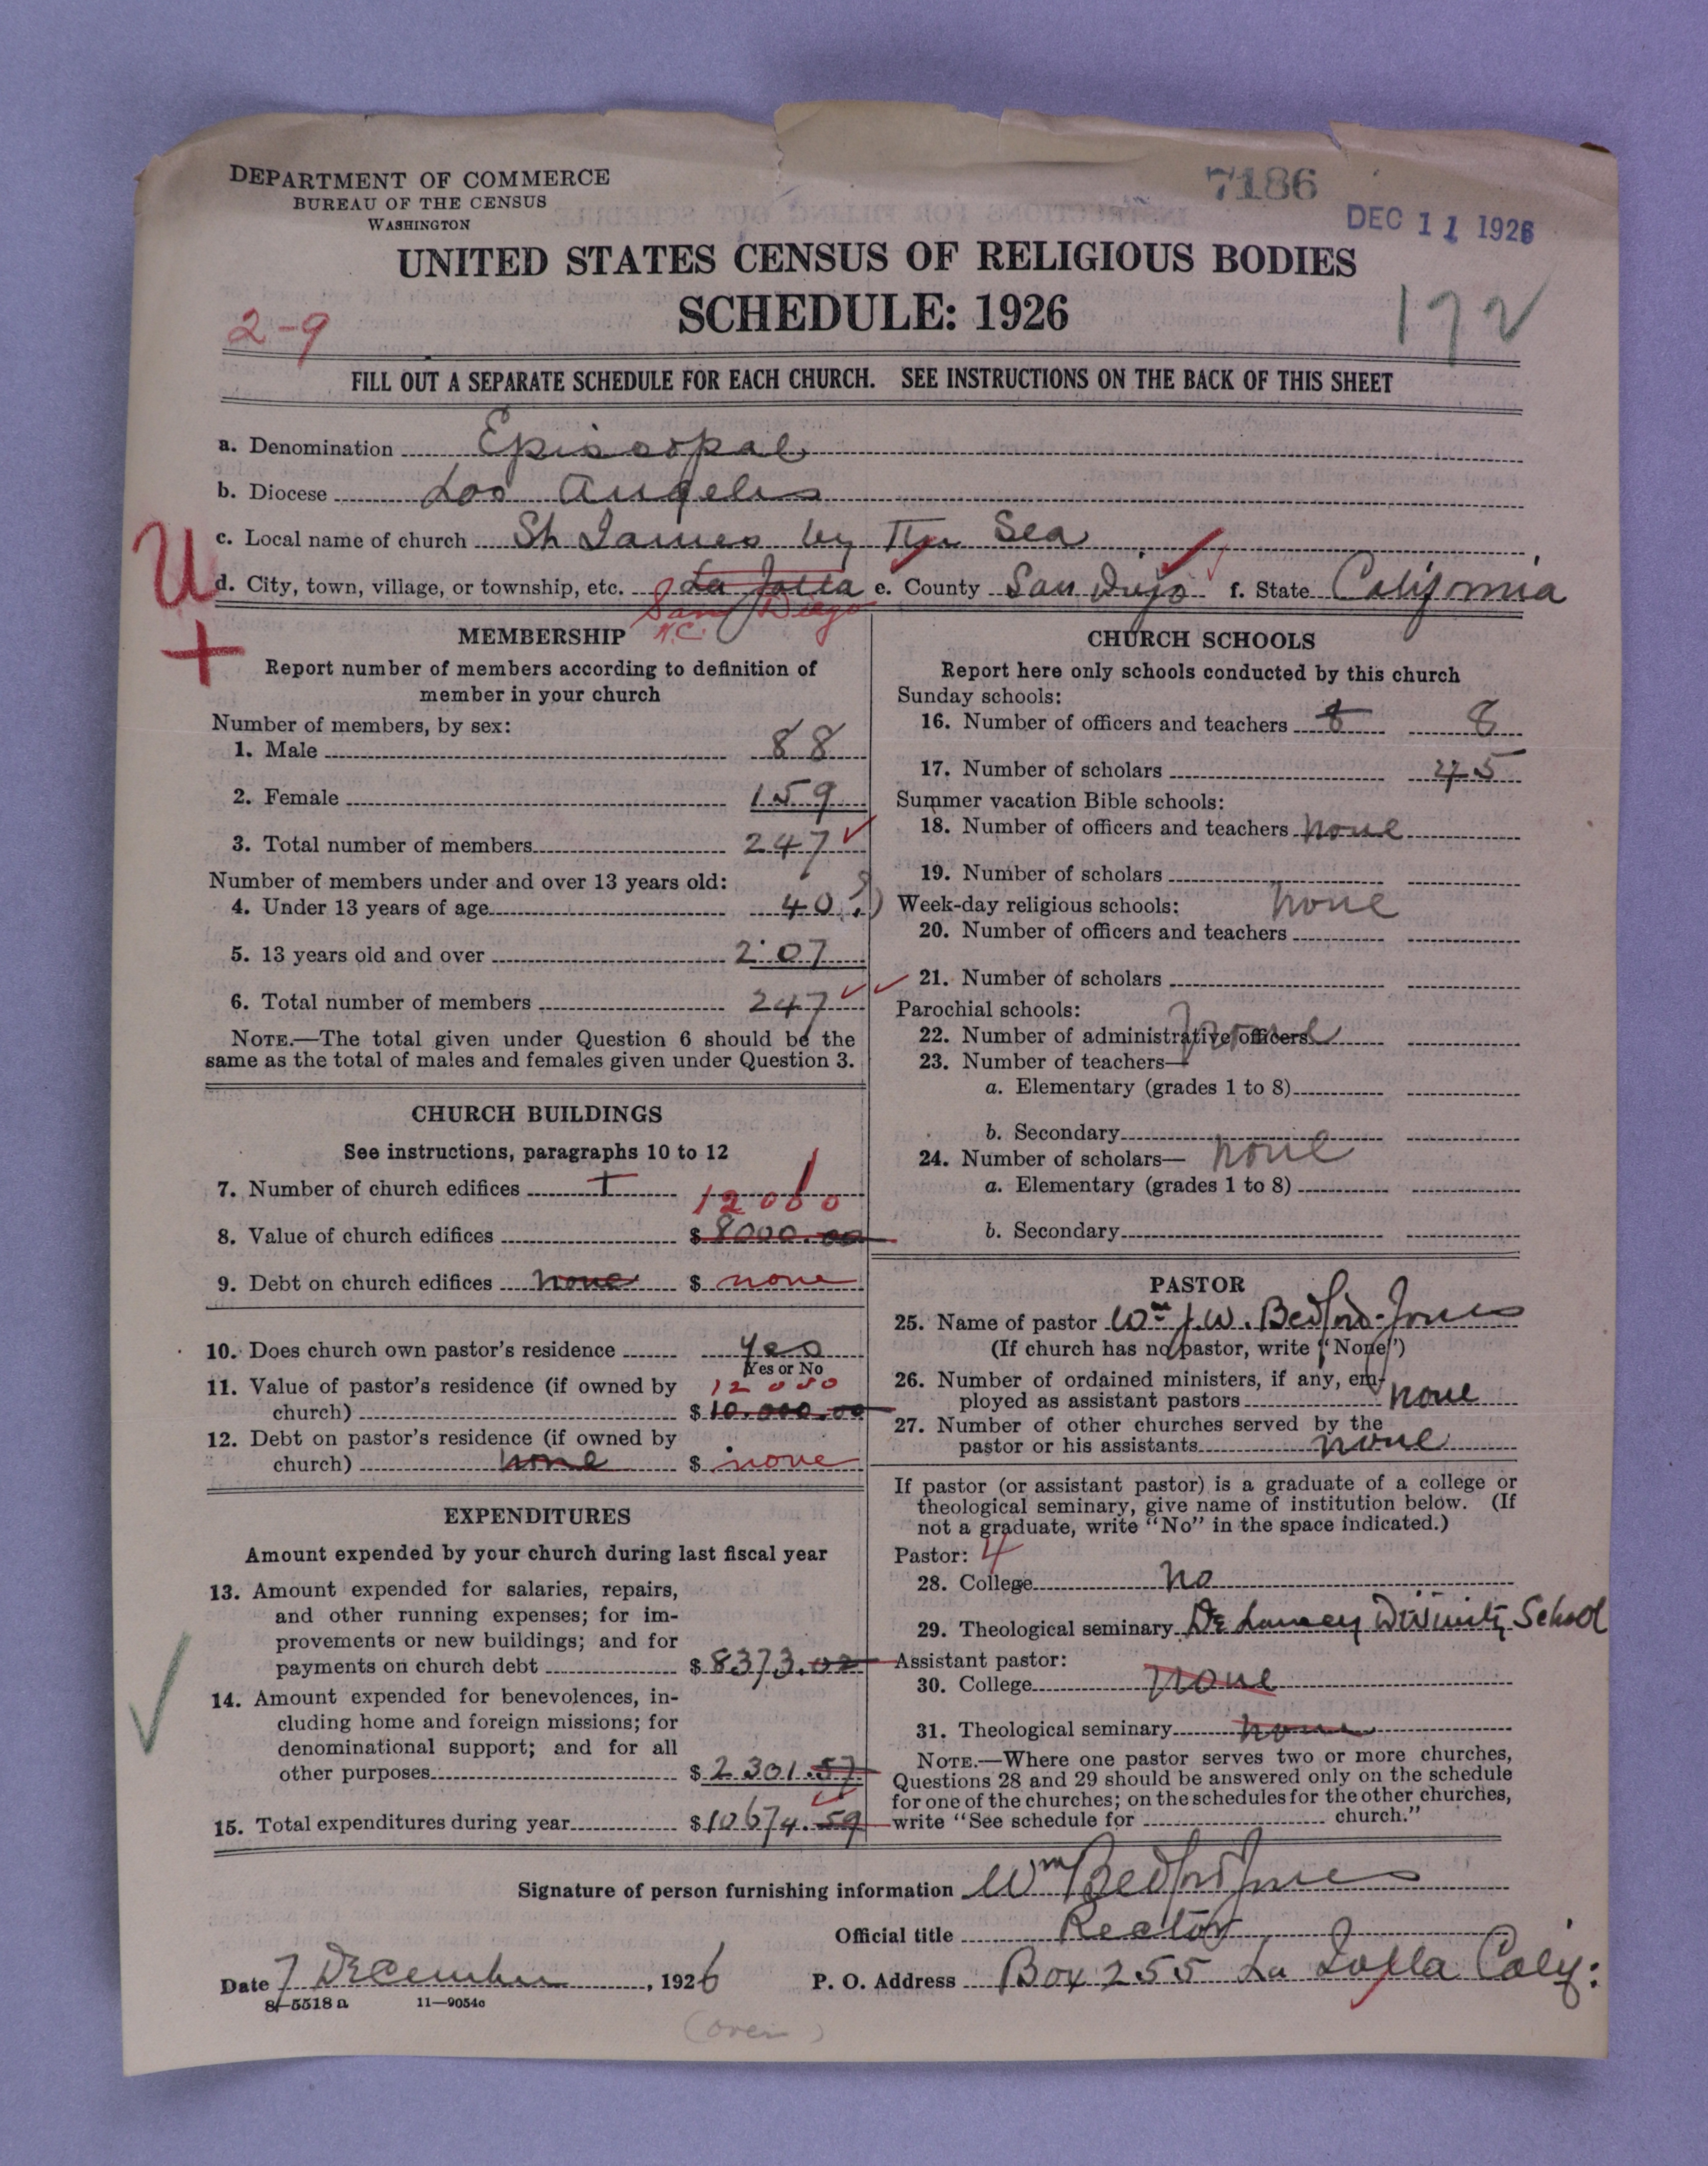 DEPARTMENT OF COMMERCE
BUREAU OF THE CENSUS
WASHINGTON
7186
DEC 11 1926
UNITED STATES CENSUS OF RELIGIOUS BODIES
SCHEDULE: 1926
2-9
172
FILL OUT A SEPARATE SCHEDULE FOR EACH CHURCH. SEE INSTRUCTIONS ON THE BACK OF THIS SHEET
a. Denomination Episcopal
b. Diocese Los Angeles
c. Local name of church St James by The Sea
U d. City, town, village, or township, etc. La Jolla e. County San Diego f. State California
San Diego
N.C.
+
MEMBERSHIP
Report number of members according to definition of
member in your church
Number of members, by sex:
1. Male 88
2. Female 159
3. Total number of members 247
Number of members under and over 13 years old:
4. Under 13 years of age 40 ?)
5. 13 years old and over 207
6. Total number of members 247
NOTE.—The total given under Question 6 should be the
same as the total of males and females given under Question 3.
CHURCH BUILDINGS
See instructions, paragraphs 10 to 12
7. Number of church edifices 1 1
12000
8. Value of church edifices $ 8000.00
9. Debt on church edifices none $ none
10. Does church own pastor's residence Yes
Yes or No
11. Value of pastor's residence (if owned by 12000
church) $ 10.000.00
12. Debt on pastor's residence (if owned by
church) none $ none
EXPENDITURES
Amount expended by your church during last fiscal year
13. Amount expended for salaries, repairs,
and other running expenses; for im-
provements or new buildings; and for
payments on church debt $ 8373.02
14. Amount expended for benevolences, in-
cluding home and foreign missions; for
denominational support; and for all
other purposes $ 2301.57
15. Total expenditures during year $ 10674.59
CHURCH SCHOOLS
Report here only schools conducted by this church
Sunday schools:
16. Number of officers and teachers 8 8
17. Number of scholars 75
Summer vacation Bible schools:
18. Number of officers and teachers none
19. Number of scholars
Week-day religious schools: none
20. Number of officers and teachers
21. Number of scholars
Parochial schools:
22. Number of administrative officers none
23. Number of teachers—
a. Elementary (grades 1 to 8)
b. Secondary
24. Number of scholars— none
a. Elementary (grades 1 to 8)
b. Secondary
PASTOR
25. Name of pastor Wm J.W. Bedford-Jones
(If church has no pastor, write "None")
26. Number of ordained ministers, if any, em-
ployed as assistant pastors none
27. Number of other churches served by the
pastor or his assistants none
If pastor (or assistant pastor) is a graduate of a college or
theological seminary, give name of institution below. (If
not a graduate, write "No" in the space indicated.)
Pastor: 4
28. College no
29. Theological seminary De Lancey Divinity School
Assistant pastor:
30. College none
31. Theological seminary none
NOTE.—Where one pastor serves two or more churches,
Questions 28 and 29 should be answered only on the schedule
for one of the churches; on the schedules for the other churches,
write "See schedule for church."
Signature of person furnishing information Wm Bedford Jones
Official title Rector
Date 7 December, 1926 P. O. Address Box 255 La Jolla Calif:
8—5518 a 11—9054c
(over)